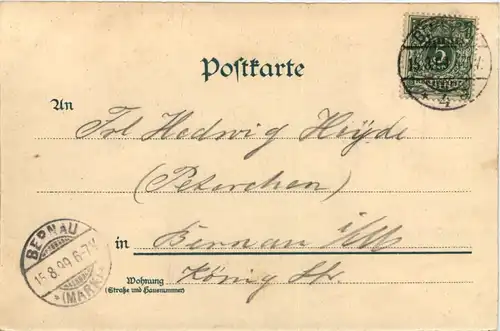 Postkarte
5
15.8.99
An
Frl Hedwig Heyde
(Peterchen)
in Bernau i/M
Wohnung König Str.
(Straße und Hausnummer)
BERNAU
15.8.99.6-7N.
*(MARK)*